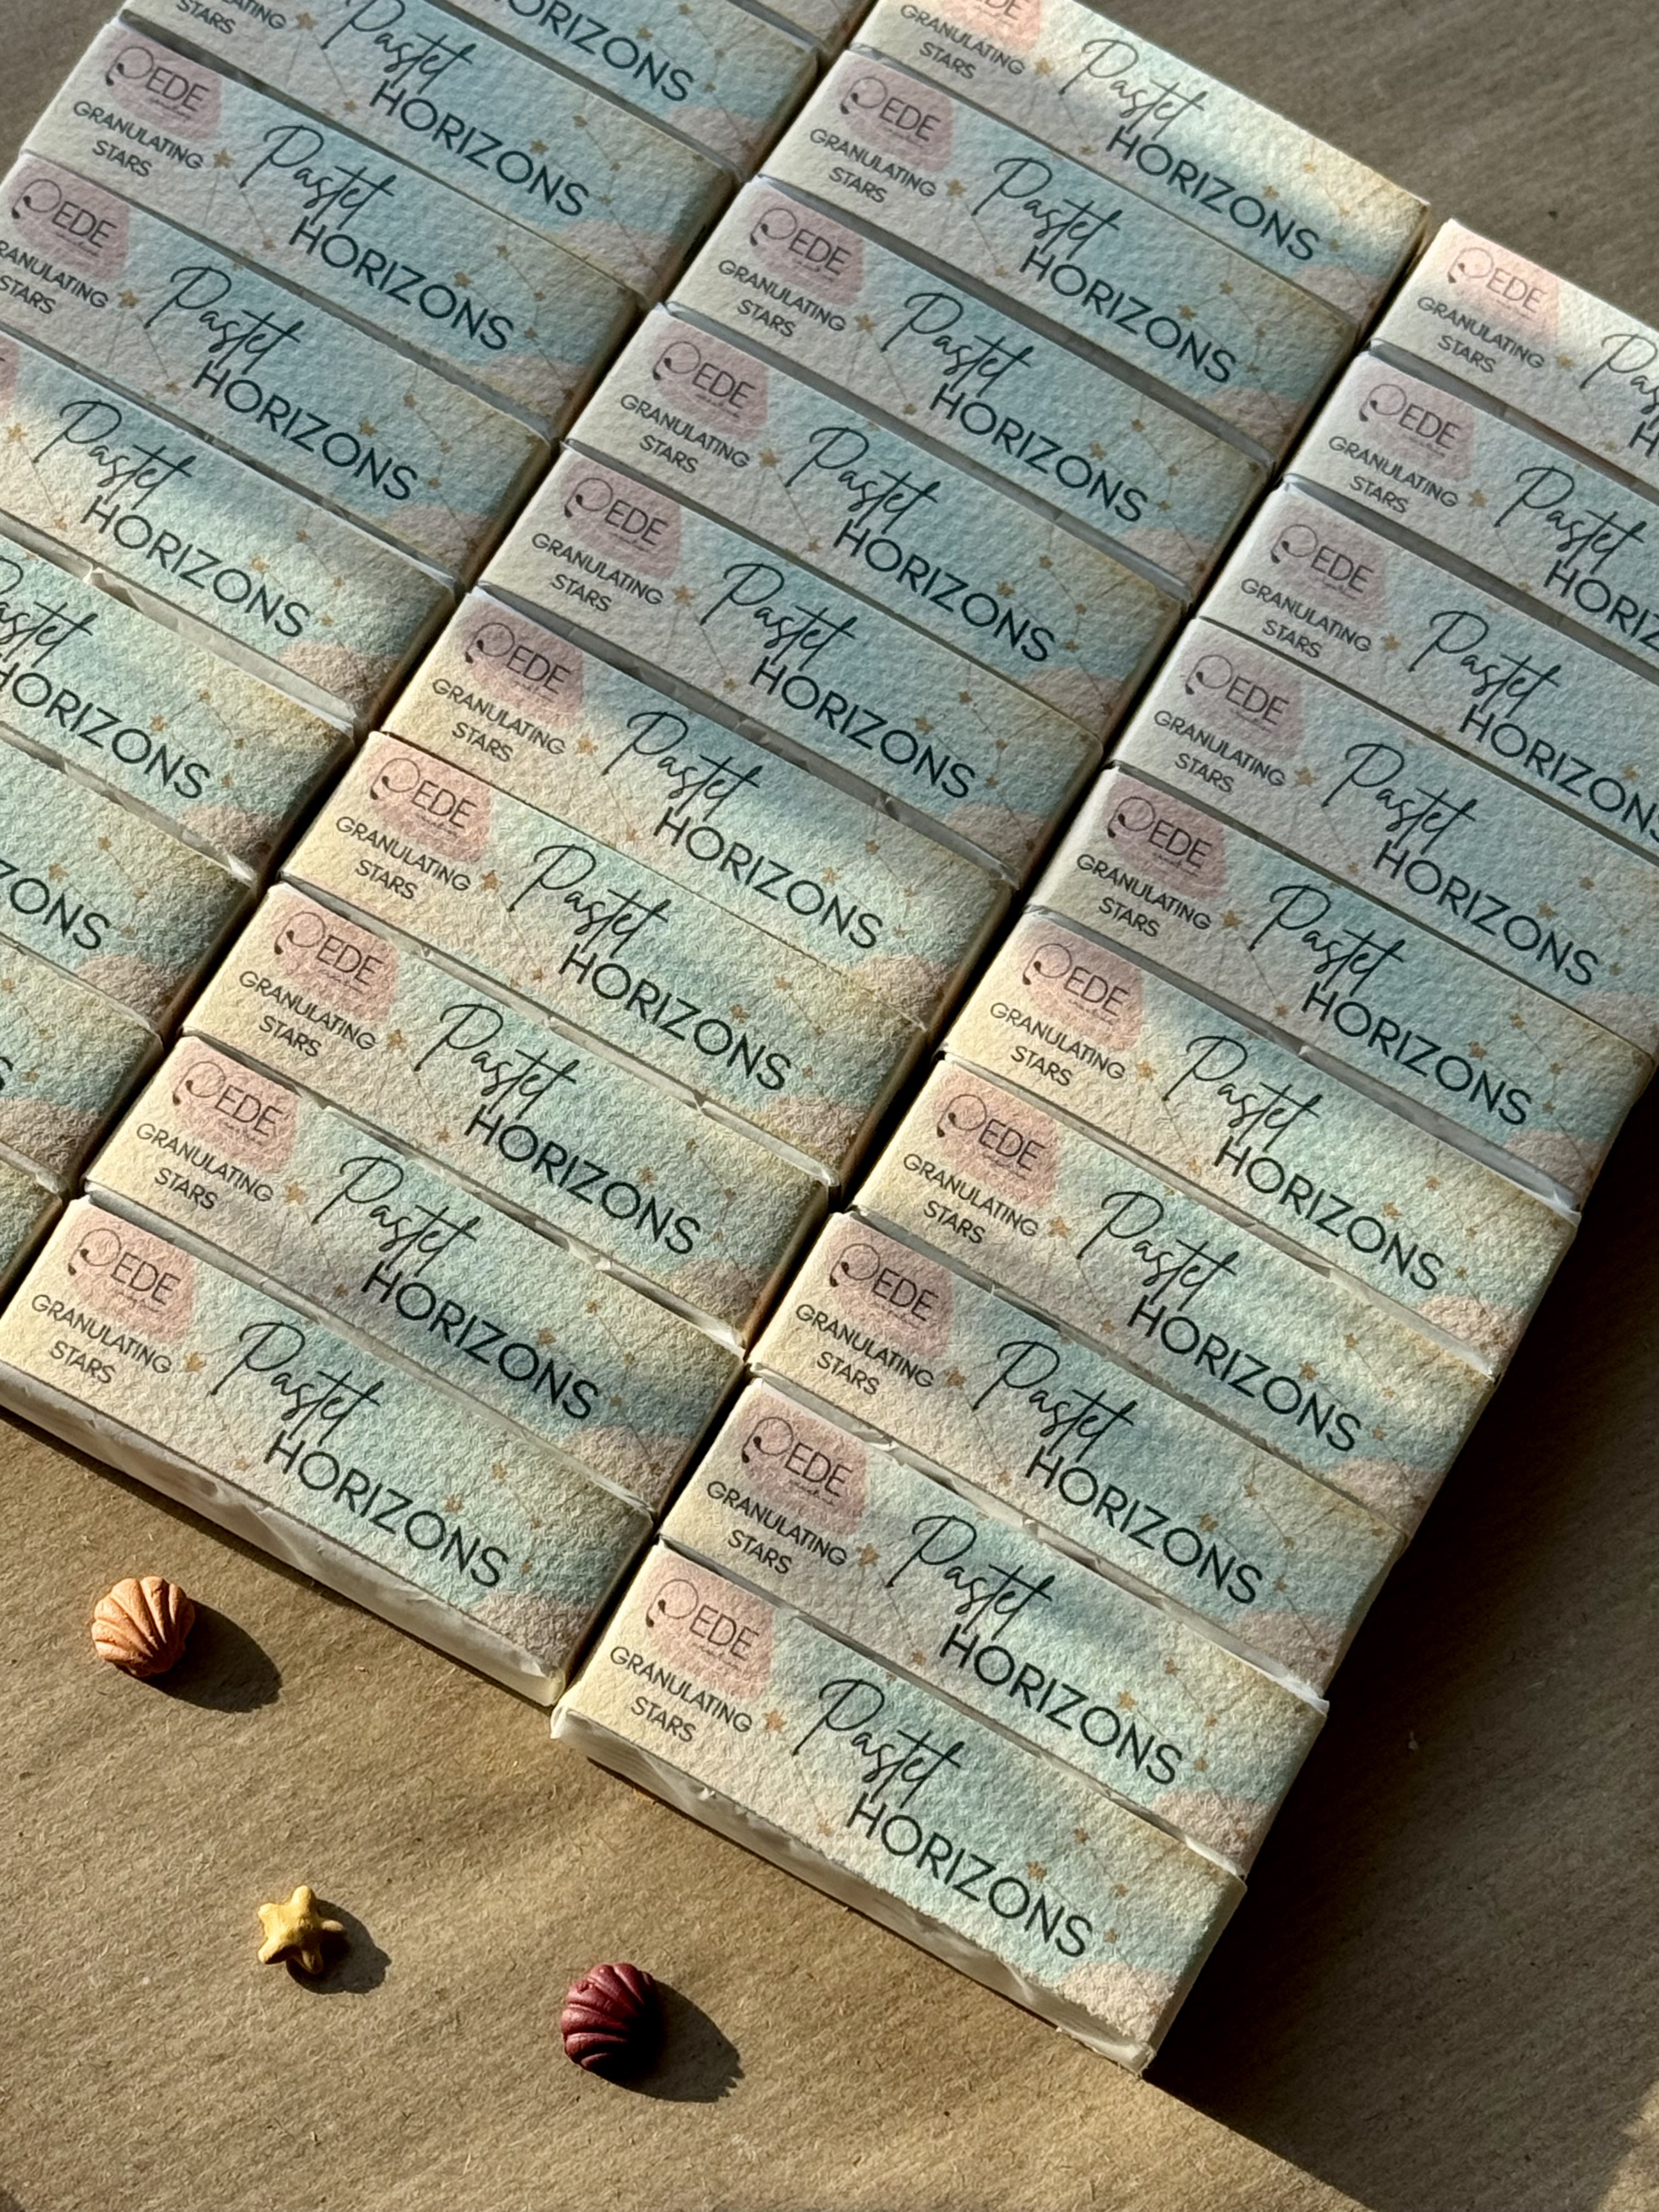 HORIZONS
STARS
Pastel
HORIZONS
PEDE
GRANULATING
STARS
Pastel
HORIZONS
PEDE
RANULATING
STARS
Pastel
HORIZONS
Pastel
HORIZONS
astel
HORIZONS
ZONS
GRANULATING
STARS
Pastel
HORIZONS
PEDE
GRANULATING
STARS
Pastel
HORIZONS
PEDE
GRANULATING
STARS
Pastel
HORIZONS
PEDE
GRANULATING
STARS
Pastel
HORIZONS
PEDE
GRANULATING
STARS
Pastel
HORIZONS
PEDE
GRANULATING
STARS
Pastel
HORIZONS
PEDE
GRANULATING
STARS
Pastel
HORIZONS
PEDE
GRANULATING
STARS
Pastel
HORIZONS
PEDE
GRANULATING
STARS
Pastel
HORIZONS
PEDE
GRANULATING
STARS
Pastel
HORIZONS
PEDE
GRANULATING
STARS
Pas
PEDE
GRANULATING
STARS
Pastel
HORIZ
PEDE
GRANULATING
STARS
Pastel
HORIZONS
PEDE
GRANULATING
STARS
Pastel
HORIZONS
PEDE
GRANULATING
STARS
Pastel
HORIZONS
PEDE
GRANULATING
STARS
Pastel
HORIZONS
PEDE
GRANULATING
STARS
Pastel
HORIZONS
PEDE
GRANULATING
STARS
Pastel
HORIZONS
PEDE
GRANULATING
STARS
Pastel
HORIZONS
PEDE
GRANULATING
STARS
Pastel
HORIZONS